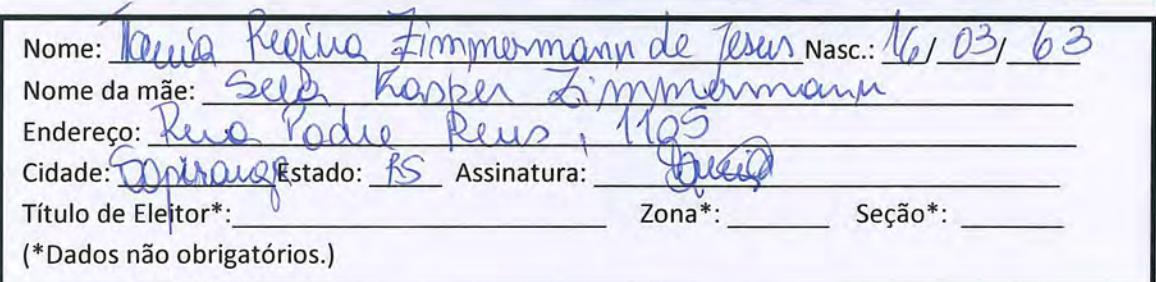 Nome: Tania Regina Zimmermann de Jesus Nasc.: 16/ 03/ 63
Nome da mãe: Kasper Zimmermann
Endereço: Rua Padre Reus, 1105
Cidade: Sapiranga Estado: RS Assinatura: Tania
Título de Eleitor*: Zona*: Seção*:
(*Dados não obrigatórios.)